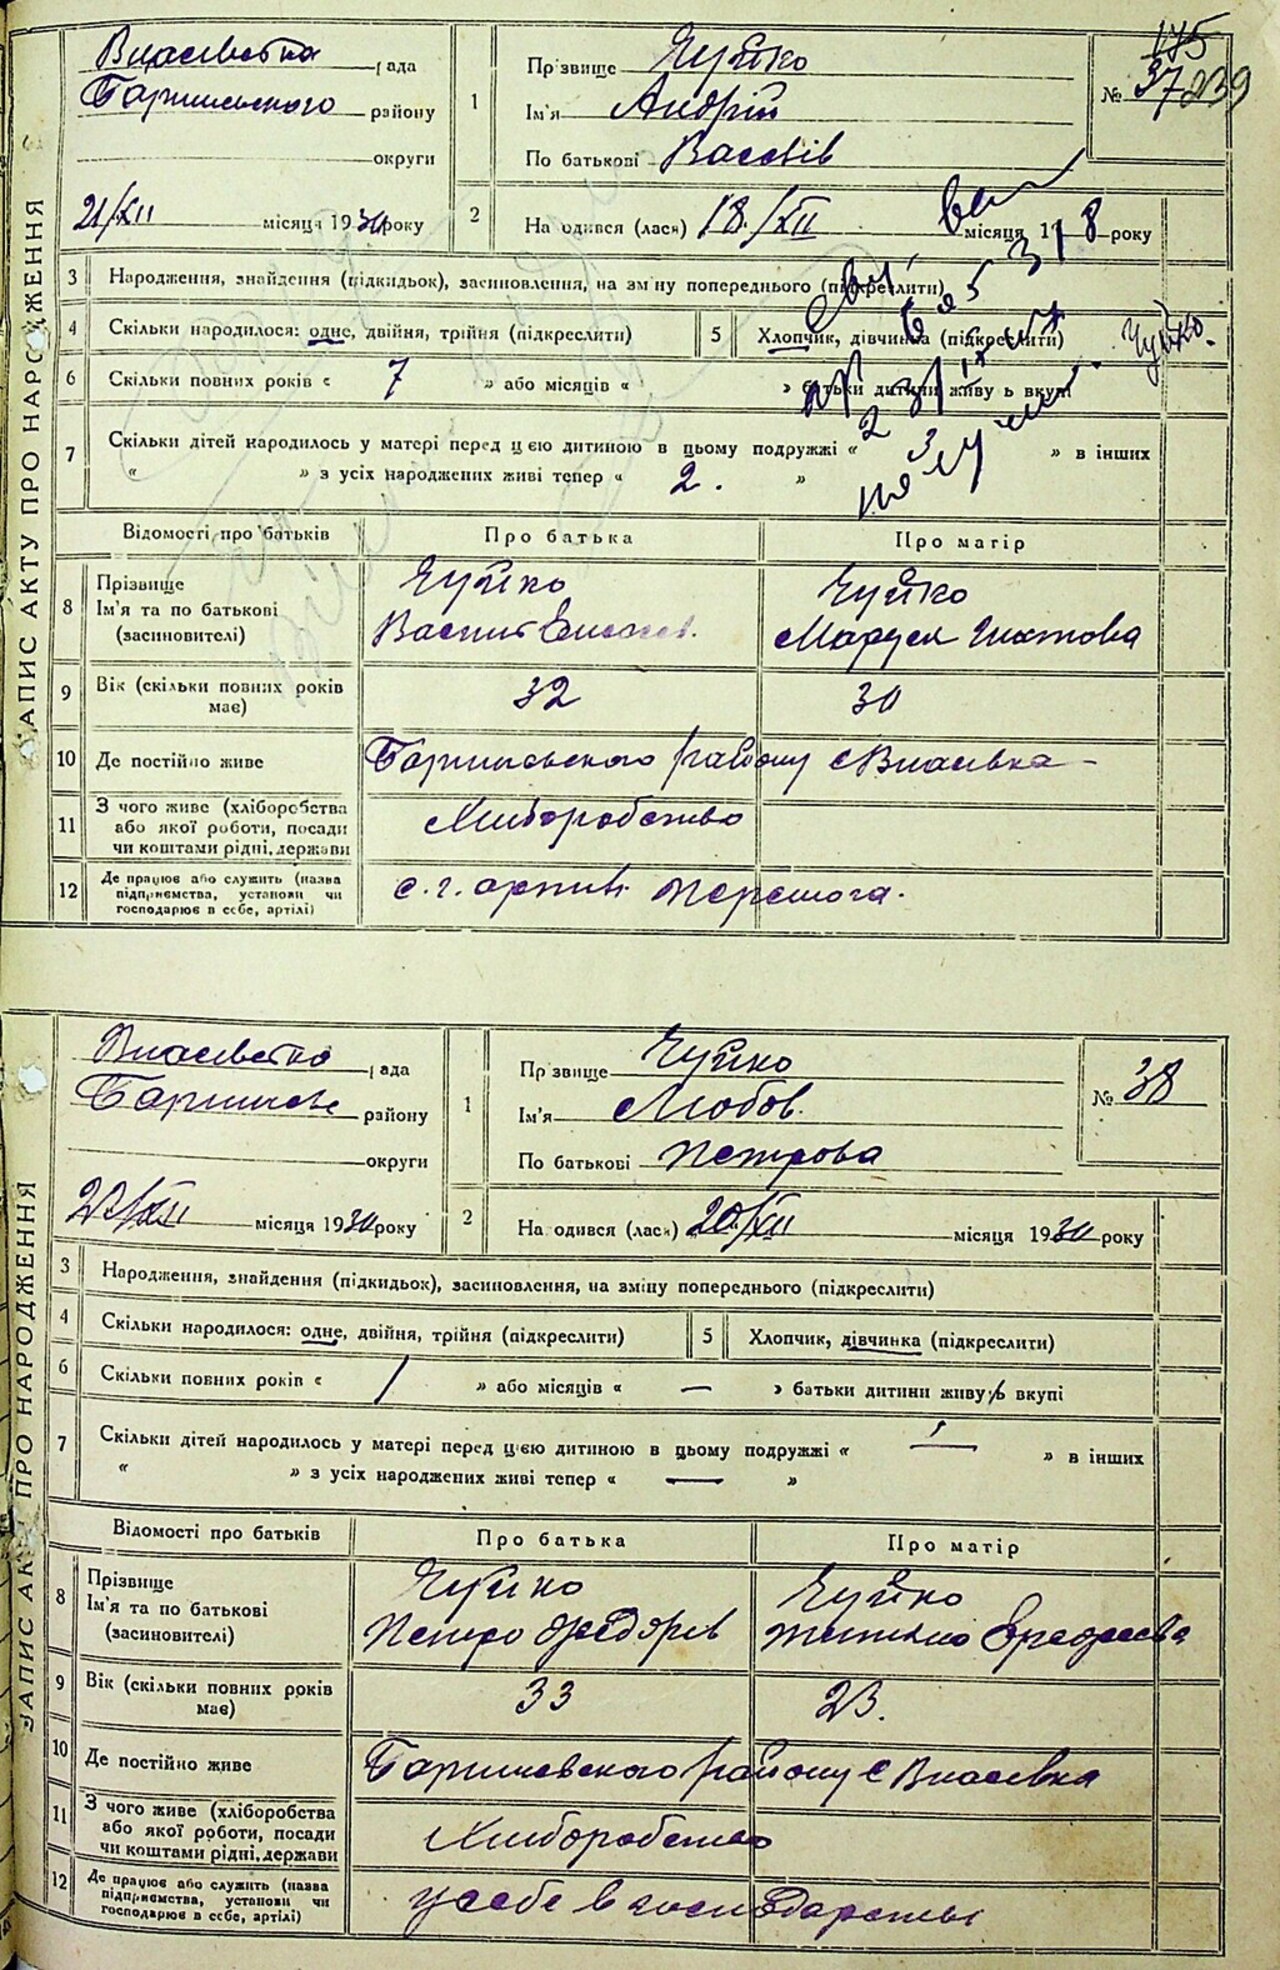 ЗАПИС АКТУ ПРО НАРОДЖЕННЯ
Власівська рада
Баришевського району
округи
21/XII місяця 1930 року
1 Прізвище Чуйко
Ім'я Андрій
По батькові Василів
№ 37 239
175
2 На одився (лася) 18/XII місяця 1 8 року
3 Народження, знайдення (підкидьок), засиновлення, на зміну попереднього (підкреслити)
4 Скільки народилося: одне, двійня, трійня (підкреслити)
5 Хлопчик, дівчинка (підкреслити)
Чуйко.
6 Скільки повних років « 7 » або місяців « » батьки дитини живу ь вкупі
7 Скільки дітей народилось у матері перед цією дитиною в цьому подружжі « 3 » в інших
« » з усіх народжених живі тепер « 2. »
Відомості про батьків Про батька Про матір
8 Прізвище
Ім'я та по батькові
(засиновителі)
Чуйко
Василь
Чуйко
Маруся
9 Вік (скільки повних років
має)
32 30
10 Де постійно живе Баришевського району с Власівка
11 З чого живе (хліборобства
або якої роботи, посади
чи коштами рідні, держави
Хліборобство
12 Де працює або служить (назва
підприємства, установи чи
господарює в себе, артілі)
с. г. артиль Перемога.
ЗАПИС АКТУ ПРО НАРОДЖЕННЯ
Власівська рада
Баришевс району
округи
/XII місяця 1930 року
1 Прізвище Чуйко
Ім'я Любов.
По батькові Петрова
№ 38
2 На одився (лася) 20/XII місяця 1930 року
3 Народження, знайдення (підкидьок), засиновлення, на зміну попереднього (підкреслити)
4 Скільки народилося: одне, двійня, трійня (підкреслити)
5 Хлопчик, дівчинка (підкреслити)
6 Скільки повних років « 1 » або місяців « — » батьки дитини живуть вкупі
7 Скільки дітей народилось у матері перед цією дитиною в цьому подружжі « — » в інших
« » з усіх народжених живі тепер « — »
Відомості про батьків Про батька Про матір
8 Прізвище
Ім'я та по батькові
(засиновителі)
Чуйко
Петро Федорів
Чуйко
9 Вік (скільки повних років
має)
33 23.
10 Де постійно живе Баришевського району с Власівка
11 З чого живе (хліборобства
або якої роботи, посади
чи коштами рідні, держави
Хліборобство
12 Де працює або служить (назва
підприємства, установи чи
господарює в себе, артілі)
у себе в господарстві